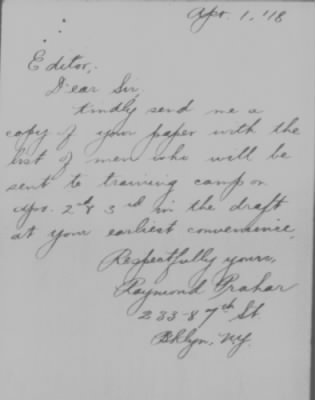 Apr. 1, '18
Editor,
Dear Sir,
Kindly send me a
copy of your paper with the
list of men who will be
sent to training camp on
Apr. 2nd & 3rd in the draft
at your earliest convenience.
Respectfully yours,
Raymond Prahar
233-87th St.
Bklyn, N.Y.